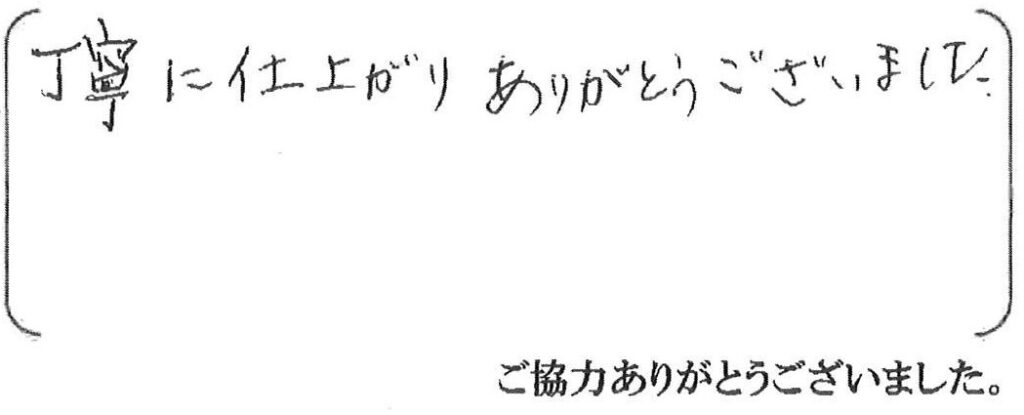 丁寧に仕上がりありがとうございました
ご協力ありがとうございました。